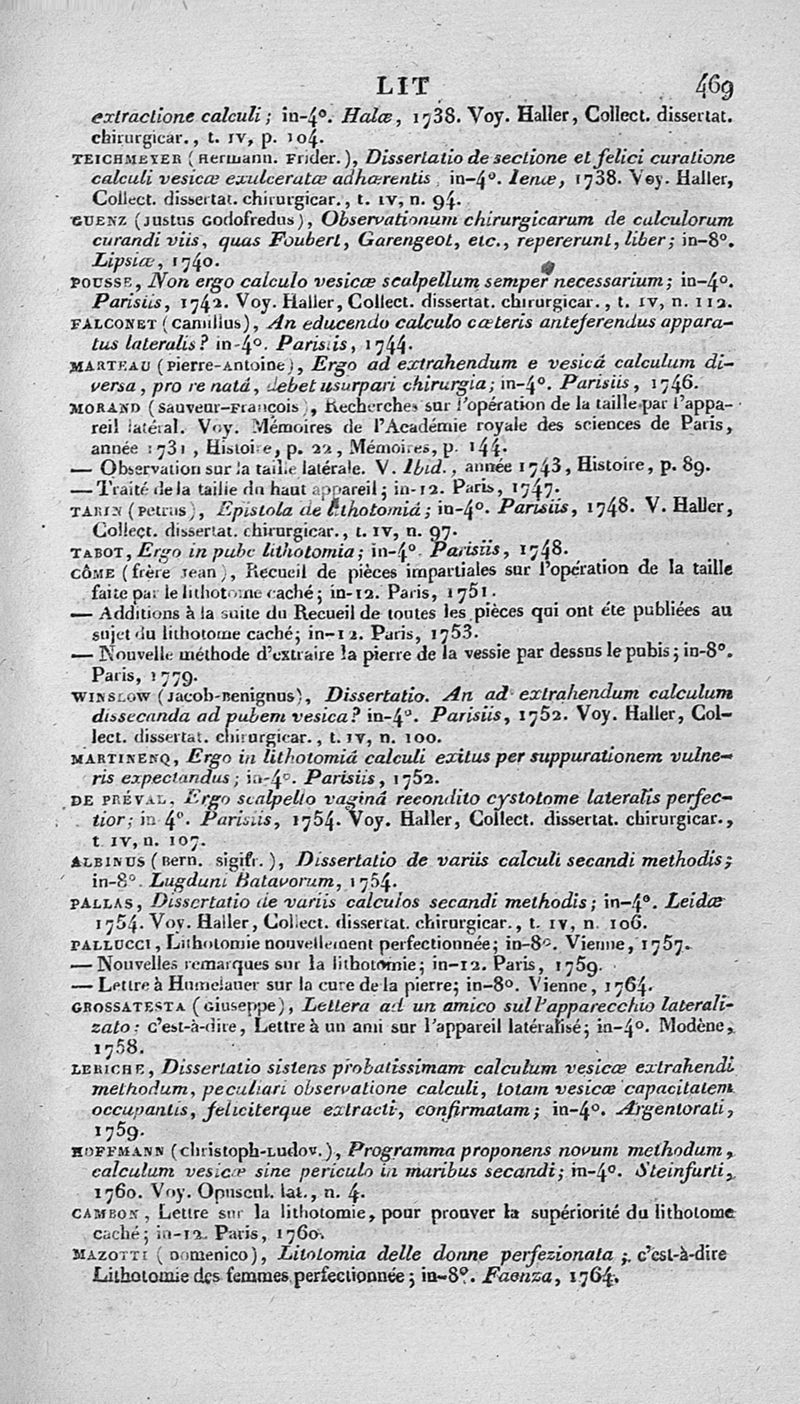 LIT 469
extractione calculi; in-4°. Halæ, 1738. Voy. Haller, Collect. dissertat.
chirurgicar., t. IV, p. 104.
TEICHMEYER (Hermann. Frider.), Dissertatio de sectione et felici curatione
calculi vesicæ exulceratæ adhærentis, in-4°. Ienæ, 1738. Voy. Haller,
Collect. dissertat. chirurgicar., t. IV, n. 94.
GUENZ (Justus Godofredus), Observationum chirurgicarum de calculorum
curandi viis, quas Foubert, Garengeot, etc., repererunt, liber; in-8°.
Lipsiæ, 1740.
POUSSE, Non ergo calculo vesicæ scalpellum semper necessarium; in-4°.
Parisiis, 1742. Voy. Haller, Collect. dissertat. chirurgicar., t. IV, n. 112.
FALCONET (Camillus), An educendo calculo cæteris anteferendus appara-
tus lateralis? in-4°. Parisiis, 1744.
MARTEAU (Pierre-Antoine), Ergo ad extrahendum e vesicâ calculum di-
versa, pro re natâ, debet usurpari chirurgia; in-4°. Parisiis, 1746.
MORAND (Sauveur-François), Recherches sur l'opération de la taille par l'appa-
reil latéral. Voy. Mémoires de l'Académie royale des sciences de Paris,
année 1731, Histoire, p. 22, Mémoires, p. 144.
— Observation sur la taille latérale. V. Ibid., année 1743, Histoire, p. 89.
— Traité de la taille du haut appareil; in-12. Paris, 1747.
TARIN (Petrus), Epistola de lithotomiâ; in-4°. Parisiis, 1748. V. Haller,
Collect. dissertat. chirurgicar., t. IV, n. 97.
TABOT, Ergo in pube lithotomia; in-4°. Parisiis, 1748.
CÔME (frère Jean), Recueil de pièces impartiales sur l'opération de la taille
faite par le lithotome caché; in-12. Paris, 1751.
— Additions à la suite du Recueil de toutes les pièces qui ont été publiées au
sujet du lithotome caché; in-12. Paris, 1753.
— Nouvelle méthode d'extraire la pierre de la vessie par dessus le pubis; in-8°.
Paris, 1779.
WINSLOW (Jacob-Benignus), Dissertatio. An ad extrahendum calculum
dissecanda ad pubem vesica? in-4°. Parisiis, 1752. Voy. Haller, Col-
lect. dissertat. chirurgicar., t. IV, n. 100.
MARTINENQ, Ergo in lithotomiâ calculi exitus per suppurationem vulne-
ris expectandus; in-4°. Parisiis, 1752.
DE PRÉVAL, Ergo scalpello vaginâ recondito cystotome lateralis perfec-
tior; in 4°. Parisiis, 1754. Voy. Haller, Collect. dissertat. chirurgicar.,
t. IV, n. 107.
ALBINUS (Bern. Sigifr.), Dissertatio de variis calculi secandi methodis;
in-8°. Lugduni Batavorum, 1754.
PALLAS, Dissertatio de variis calculos secandi methodis; in-4°. Leidæ
1754. Voy. Haller, Collect. dissertat. chirurgicar., t. IV, n. 106.
PALLUCCI, Lithotomie nouvellement perfectionnée; in-8°. Vienne, 1757.
— Nouvelles remarques sur la lithotomie; in-12. Paris, 1759.
— Lettre à Humelauer sur la cure de la pierre; in-8°. Vienne, 1764.
GROSSATESTA (Giuseppe), Lettera ad un amico sull'apparecchio laterali-
zato; c'est-à-dire, Lettre à un ami sur l'appareil latéralisé; in-4°. Modène,
1758.
LERICHE, Dissertatio sistens probatissimam calculum vesicæ extrahendi
methodum, peculiari observatione calculi, totam vesicæ capacitatem
occupantis, feliciterque extracti, confirmatam; in-4°. Argentorati,
1759.
HOFFMANN (Christoph-Ludov.), Programma proponens novum methodum,
calculum vesicæ sine periculo in maribus secandi; in-4°. Steinfurti,
1760. Voy. Opuscul. lat., n. 4.
CAMBON, Lettre sur la lithotomie, pour prouver la supériorité du lithotome
caché; in-12. Paris, 1760.
MAZOTTI (Domenico), Litotomia delle donne perfezionata; c'est-à-dire
Lithotomie des femmes perfectionnée; in-8°. Faenza, 1764.